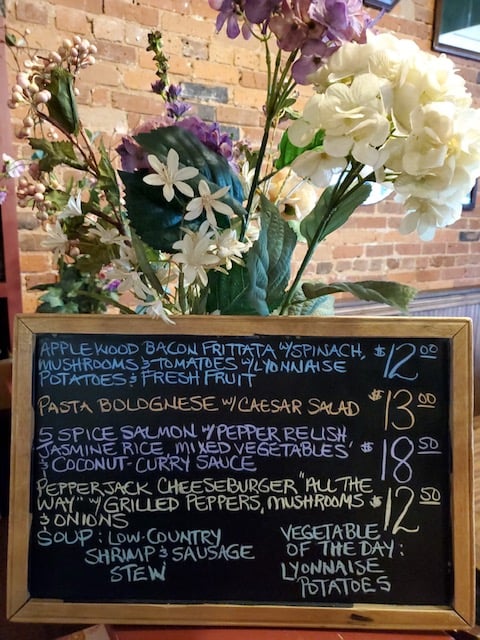 APPLEWOOD BACON FRITTATA W/SPINACH, $12.00
MUSHROOMS & TOMATOES W/LYONNAISE
POTATOES & FRESH FRUIT
PASTA BOLOGNESE W/CAESAR SALAD $13.00
5 SPICE SALMON W/PEPPER RELISH,
JASMINE RICE, MIXED VEGETABLES $18.50
& COCONUT-CURRY SAUCE
PEPPERJACK CHEESEBURGER "ALL THE
WAY" W/GRILLED PEPPERS, MUSHROOMS $12.50
& ONIONS
SOUP: LOW-COUNTRY
SHRIMP & SAUSAGE
STEW
VEGETABLE
OF THE DAY:
LYONNAISE
POTATOES